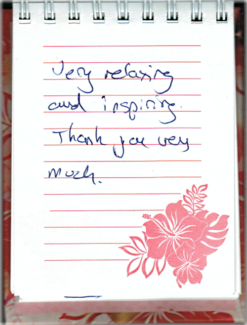 Very relaxing
and inspiring.
Thank you very
much.